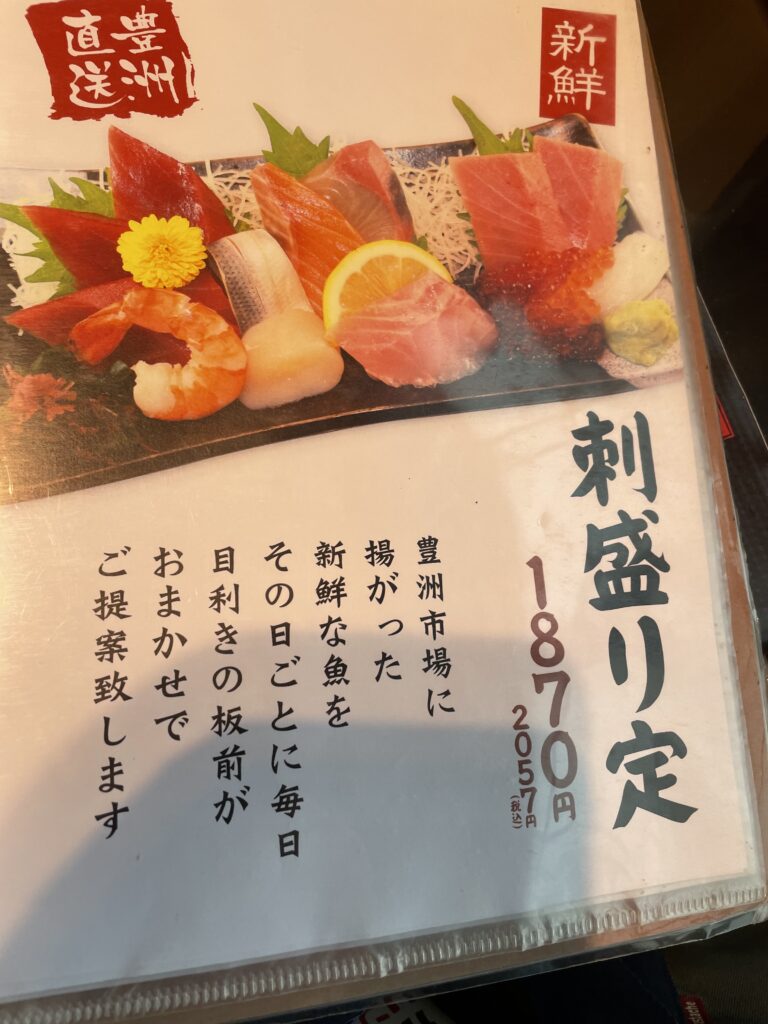 豊洲
直送
新鮮
刺盛り定
1870円
2057円(税込)
豊洲市場に
揚がった
新鮮な魚を
その日ごとに毎日
目利きの板前が
おまかせで
ご提案致します